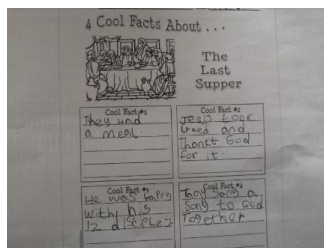 4 Cool Facts About . . .
The
Last
Supper
Cool Fact #1
They had
a meal
Cool Fact #2
took
and
Thankt God
for it.
Cool Fact #3
He was
with his
12
Cool Fact #4
sang a
Song to God
Together